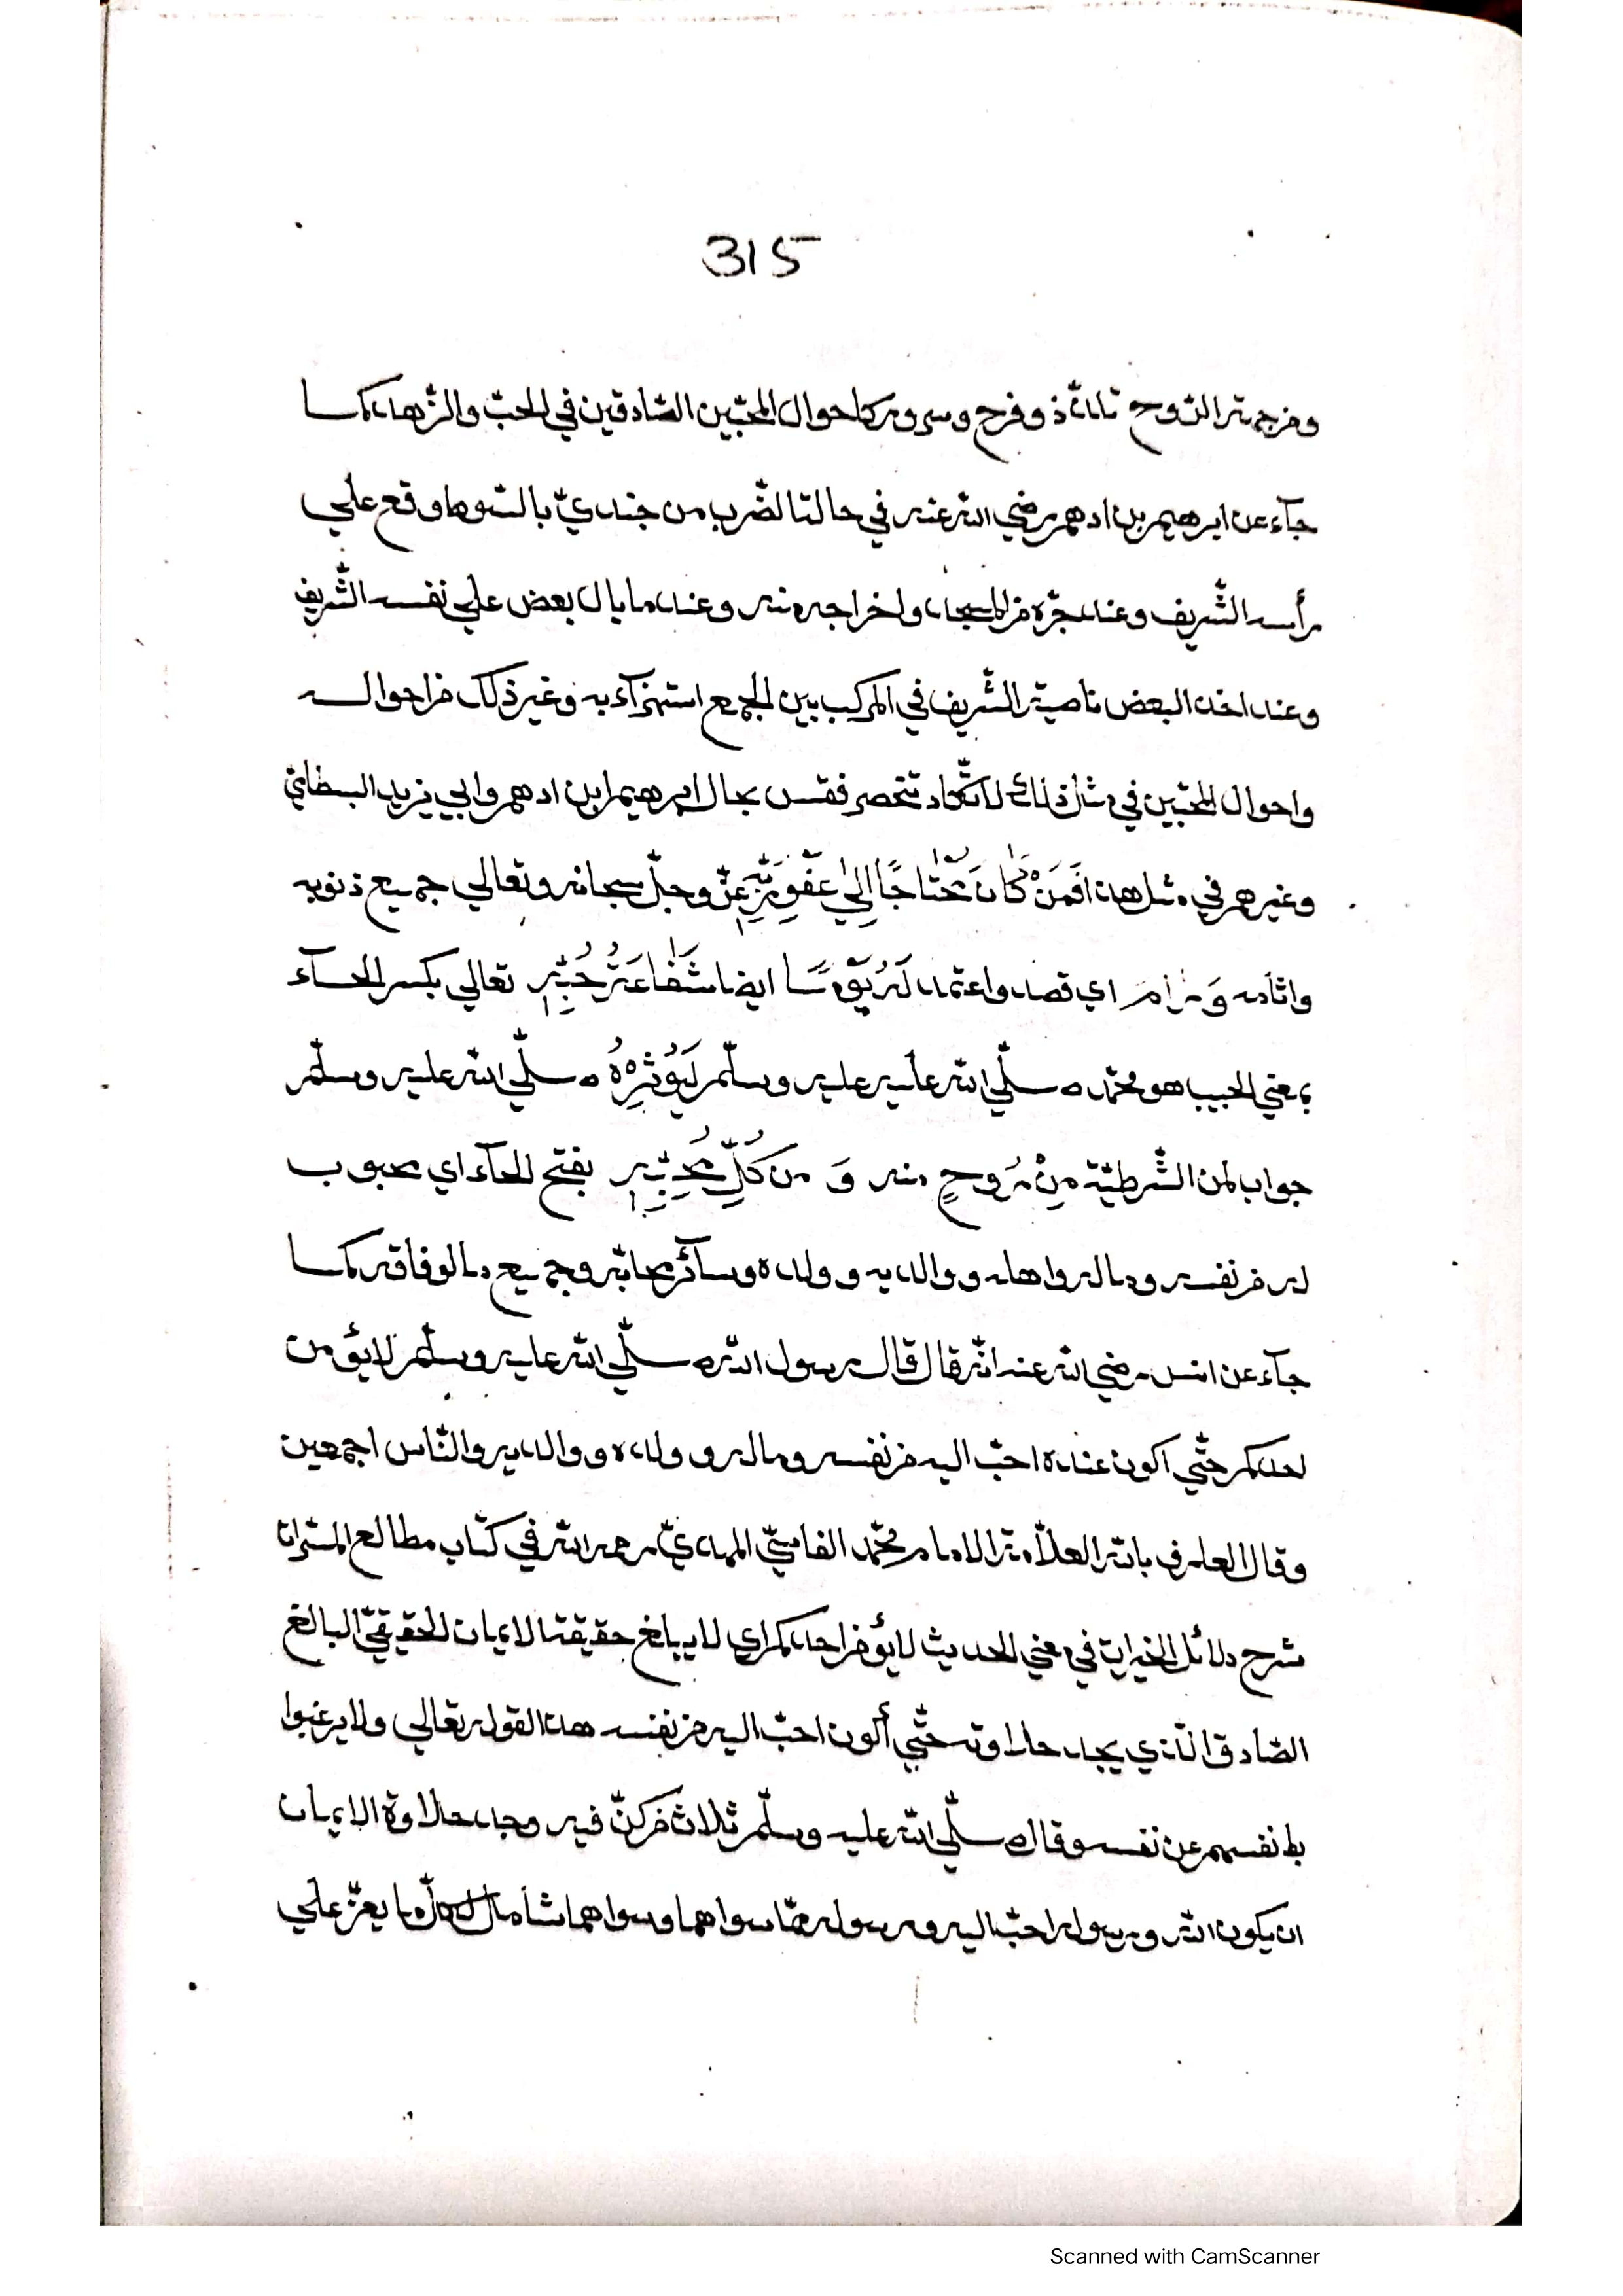 315
ومن جهة الروح تلذذ وفرح وسرور كاحوال المحبّين الصّادقين في الحبّ والزّهاد كما
جآء عن ابرهيم بن ادهم رضي الله عنه في حالة الضّرب من جنديّ بالسّوط وقع علي
رأسه الشّريف وعند جرّه من المسجد واخراجه منه وعند ما بال بعض علي نفسه الشّريف
وعند اخذ البعض ناصيته الشّريف في المركب بين الجمع استهزآء به وغير ذلك من احواله
واحوال المحبّين في مثل ذلك لا تكاد تنحصر فقس بحال ابرهيم ابن ادهم وابي يزيد البسطاميّ
وغيرهم في مثل هذا فَمَنْ كَانَ مُحْتَاجًا إِلَى عَفْوِ رَبِّهِ عزّ وجلّ سبحانه وتعالي جميع ذنوبه
واثامه وَرَامَ اي قصد واعتمد ايضا شَفَاعَةَ حُبِّهِ تعالي بكسر الحآء
بمعني الحبيب هو محمّد صلّي الله عليه عليه وسلّم لَيُؤْثِرْهُ صلّي الله عليه وسلّم
جواب لمن الشّرطيّة مِنْ رُوحٍ منه وَ من كُلِّ مُحَبِّهِ بفتح الحآء اي محبوب
له من نفسه وماله واهله ووالديه وولده وسآئر محابّه وجميع مالوفاته كما
جآء عن انس رضي الله عنه انّه قال قال رسول الله صلّي الله عليه وسلّم لا يؤمن
احدكم حتّي اكون عنده احبّ اليه من نفسه وماله وولده ووالديه والنّاس اجمعين
وقال العارف بالله العلاّمة الامام محمّد الفاسيّ المهديّ رحمه الله في كتاب مطالع المسرّات
شرح دلائل الخيرات في معني الحديث لا يؤمن احدكم اي لا يبلغ حقيقة الايمان الحقيقيّ البالغ
الصّادق الّذي يجد حلاوته حتّي أكون احبّ اليه من نفسه هذا لقوله تعالي ولا يرغبوا
بانفسهم عن نفسه وقال صلّي الله عليه وسلّم ثلاث من كنّ فيه وجد حلاوة الايمان
ان يكون الله ورسوله احبّ اليه ورسوله ممّا سواهما وسواهما شامل لكلّ ما يعزّ علي
Scanned with CamScanner